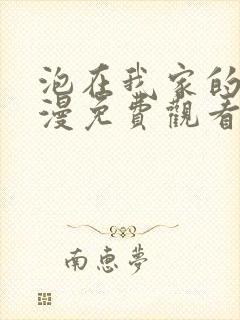 泡在我家的
漫免費觀看
南惠夢